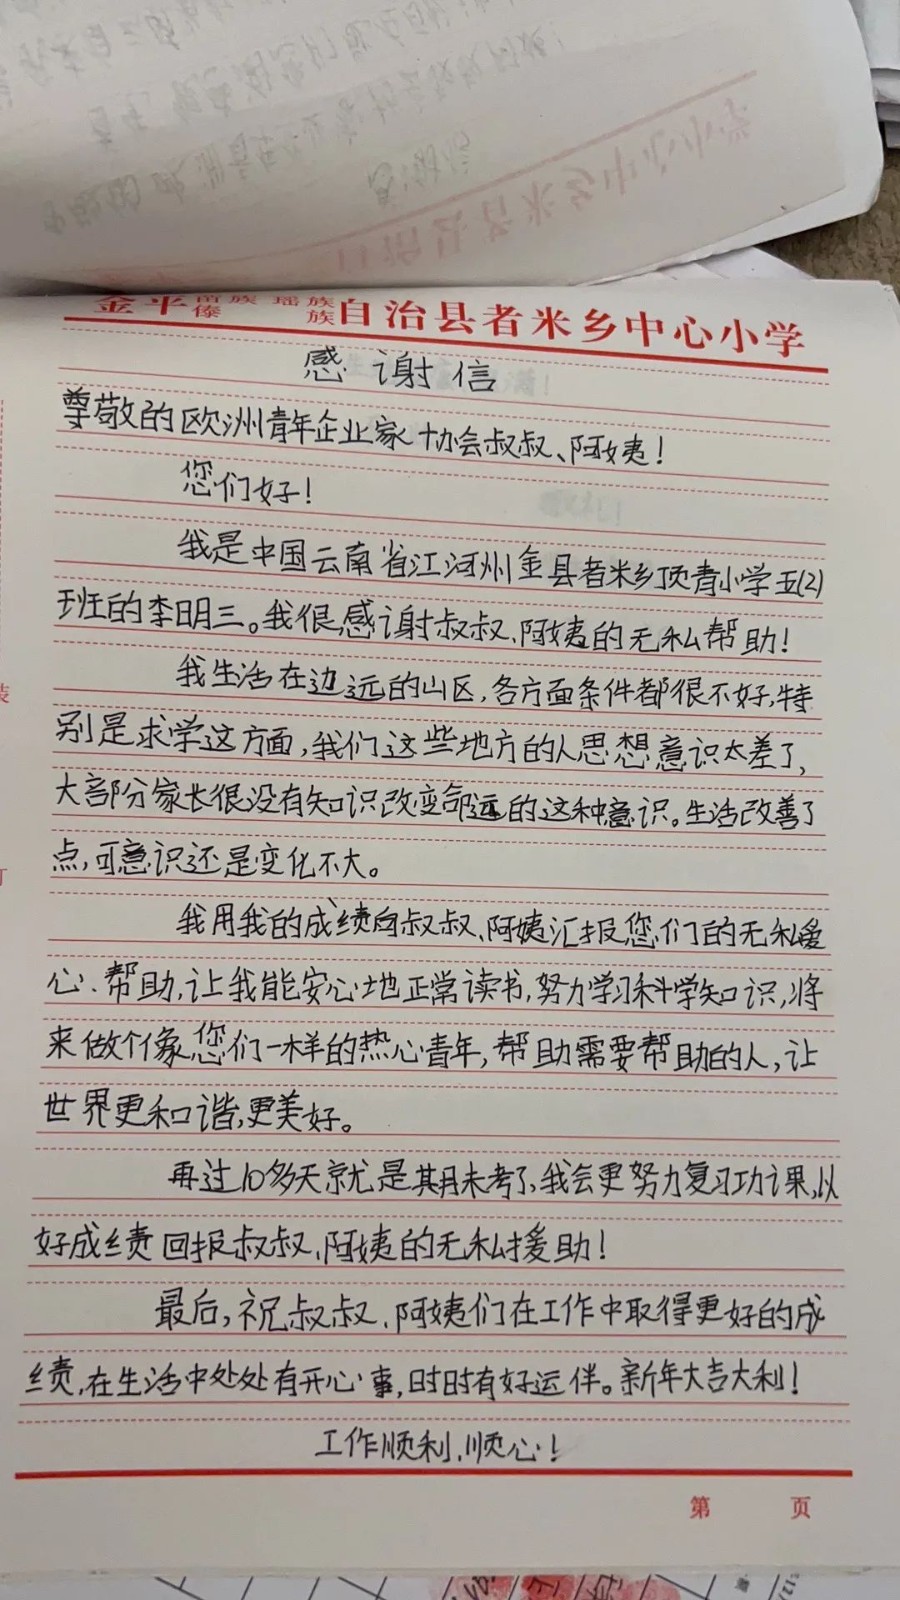 金平苗族瑶族傣族自治县者米乡中心小学
感谢信
尊敬的欧洲青年企业家协会叔叔、阿姨！
您们好！
我是中国云南省江河州金县者米乡顶青小学五(2)
班的李明三。我很感谢叔叔、阿姨的无私帮助！
我生活在边远的山区，各方面条件都很不好，特
别是求学这方面，我们这些地方的人思想意识太差了，
大部分家长很没有知识改变命运的这种意识。生活改善了
点，可意识还是变化不大。
我用我的成绩向叔叔、阿姨汇报您们的无私爱
心、帮助，让我能安心地正常读书，努力学习科学知识，将
来做个像您们一样的热心青年，帮助需要帮助的人，让
世界更和谐，更美好。
再过10多天就是期末考了，我会更努力复习功课，以
好成绩回报叔叔、阿姨的无私援助！
最后，祝叔叔、阿姨们在工作中取得更好的成
绩，在生活中处处有开心事，时时有好运伴。新年大吉大利！
工作顺利、顺心！
第 页